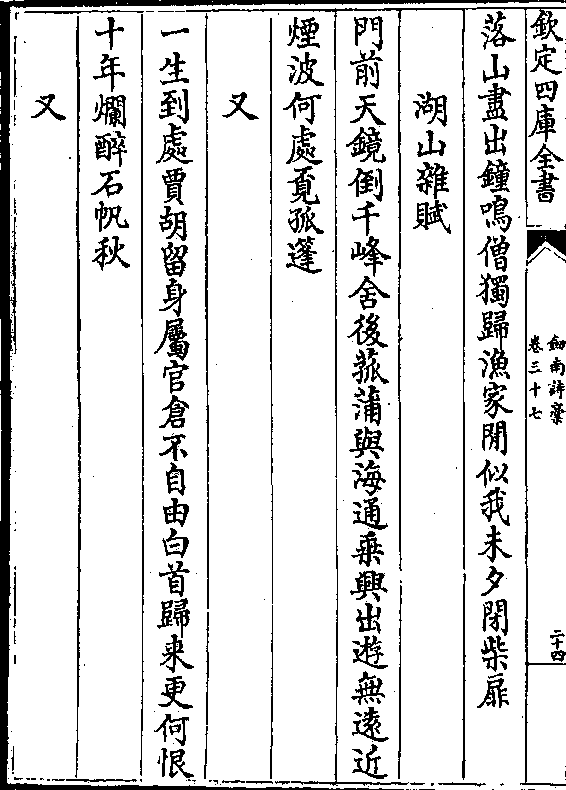 欽定四庫全書
劍南詩稾
卷三十七
二十四
落山盡出鐘鳴僧獨歸漁家閒似我未夕閉柴扉
湖山雜賦
門前天鏡倒千峰舍後菰蒲與海通乗興出遊無遠近
煙波何處覓孤篷
又
一生到處賈胡留身屬官倉不自由白首歸来更何恨
十年爛醉石帆秋
又